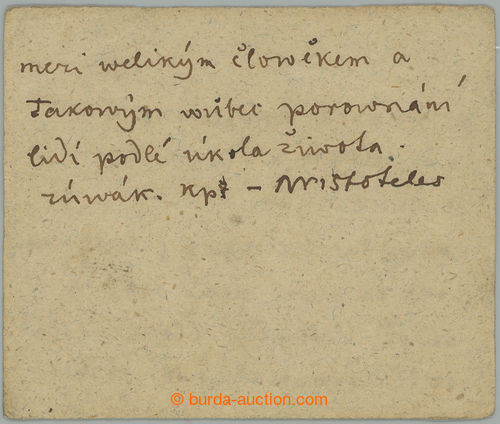 mezi welikým člowěkem a
takowým wůbec porownání
lidí podlé úkola života.
zúwák. np. – Aristoteles
© burda-auction.com